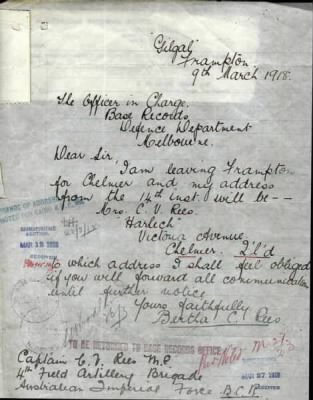 "Gilgal"
Frampton
9th March 1918.
The Officer in Charge.
Base Records
Defence Department
Melbourne.
Dear Sir I am leaving Frampton
for Chelmer and my address
from the 14th inst. will be --
Mrs. C. V. Rees.
"Harlech"
Victoria Avenue.
Chelmer. Q'l'd
to which address I shall feel obliged
if you will forward all communication
until further notice
Yours faithfully
Bertha C. Rees.
TO BE RETURNED TO BASE RECORDS OFFICE
Captain Rees M.C.
4th Field Artillery Brigade
Australian Imperial Force
MAR 27 1918